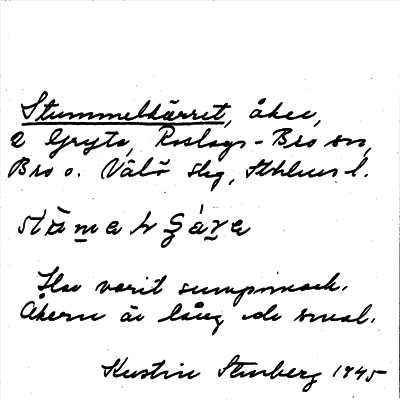 Stummelkärret, åker,
2 Gryta, Roslags-Bro sn,
Bro o. Vätö slg, Sthlms l.
Har varit sumpmark.
Åkern är lång och smal.
Kustin Stenberg 1945